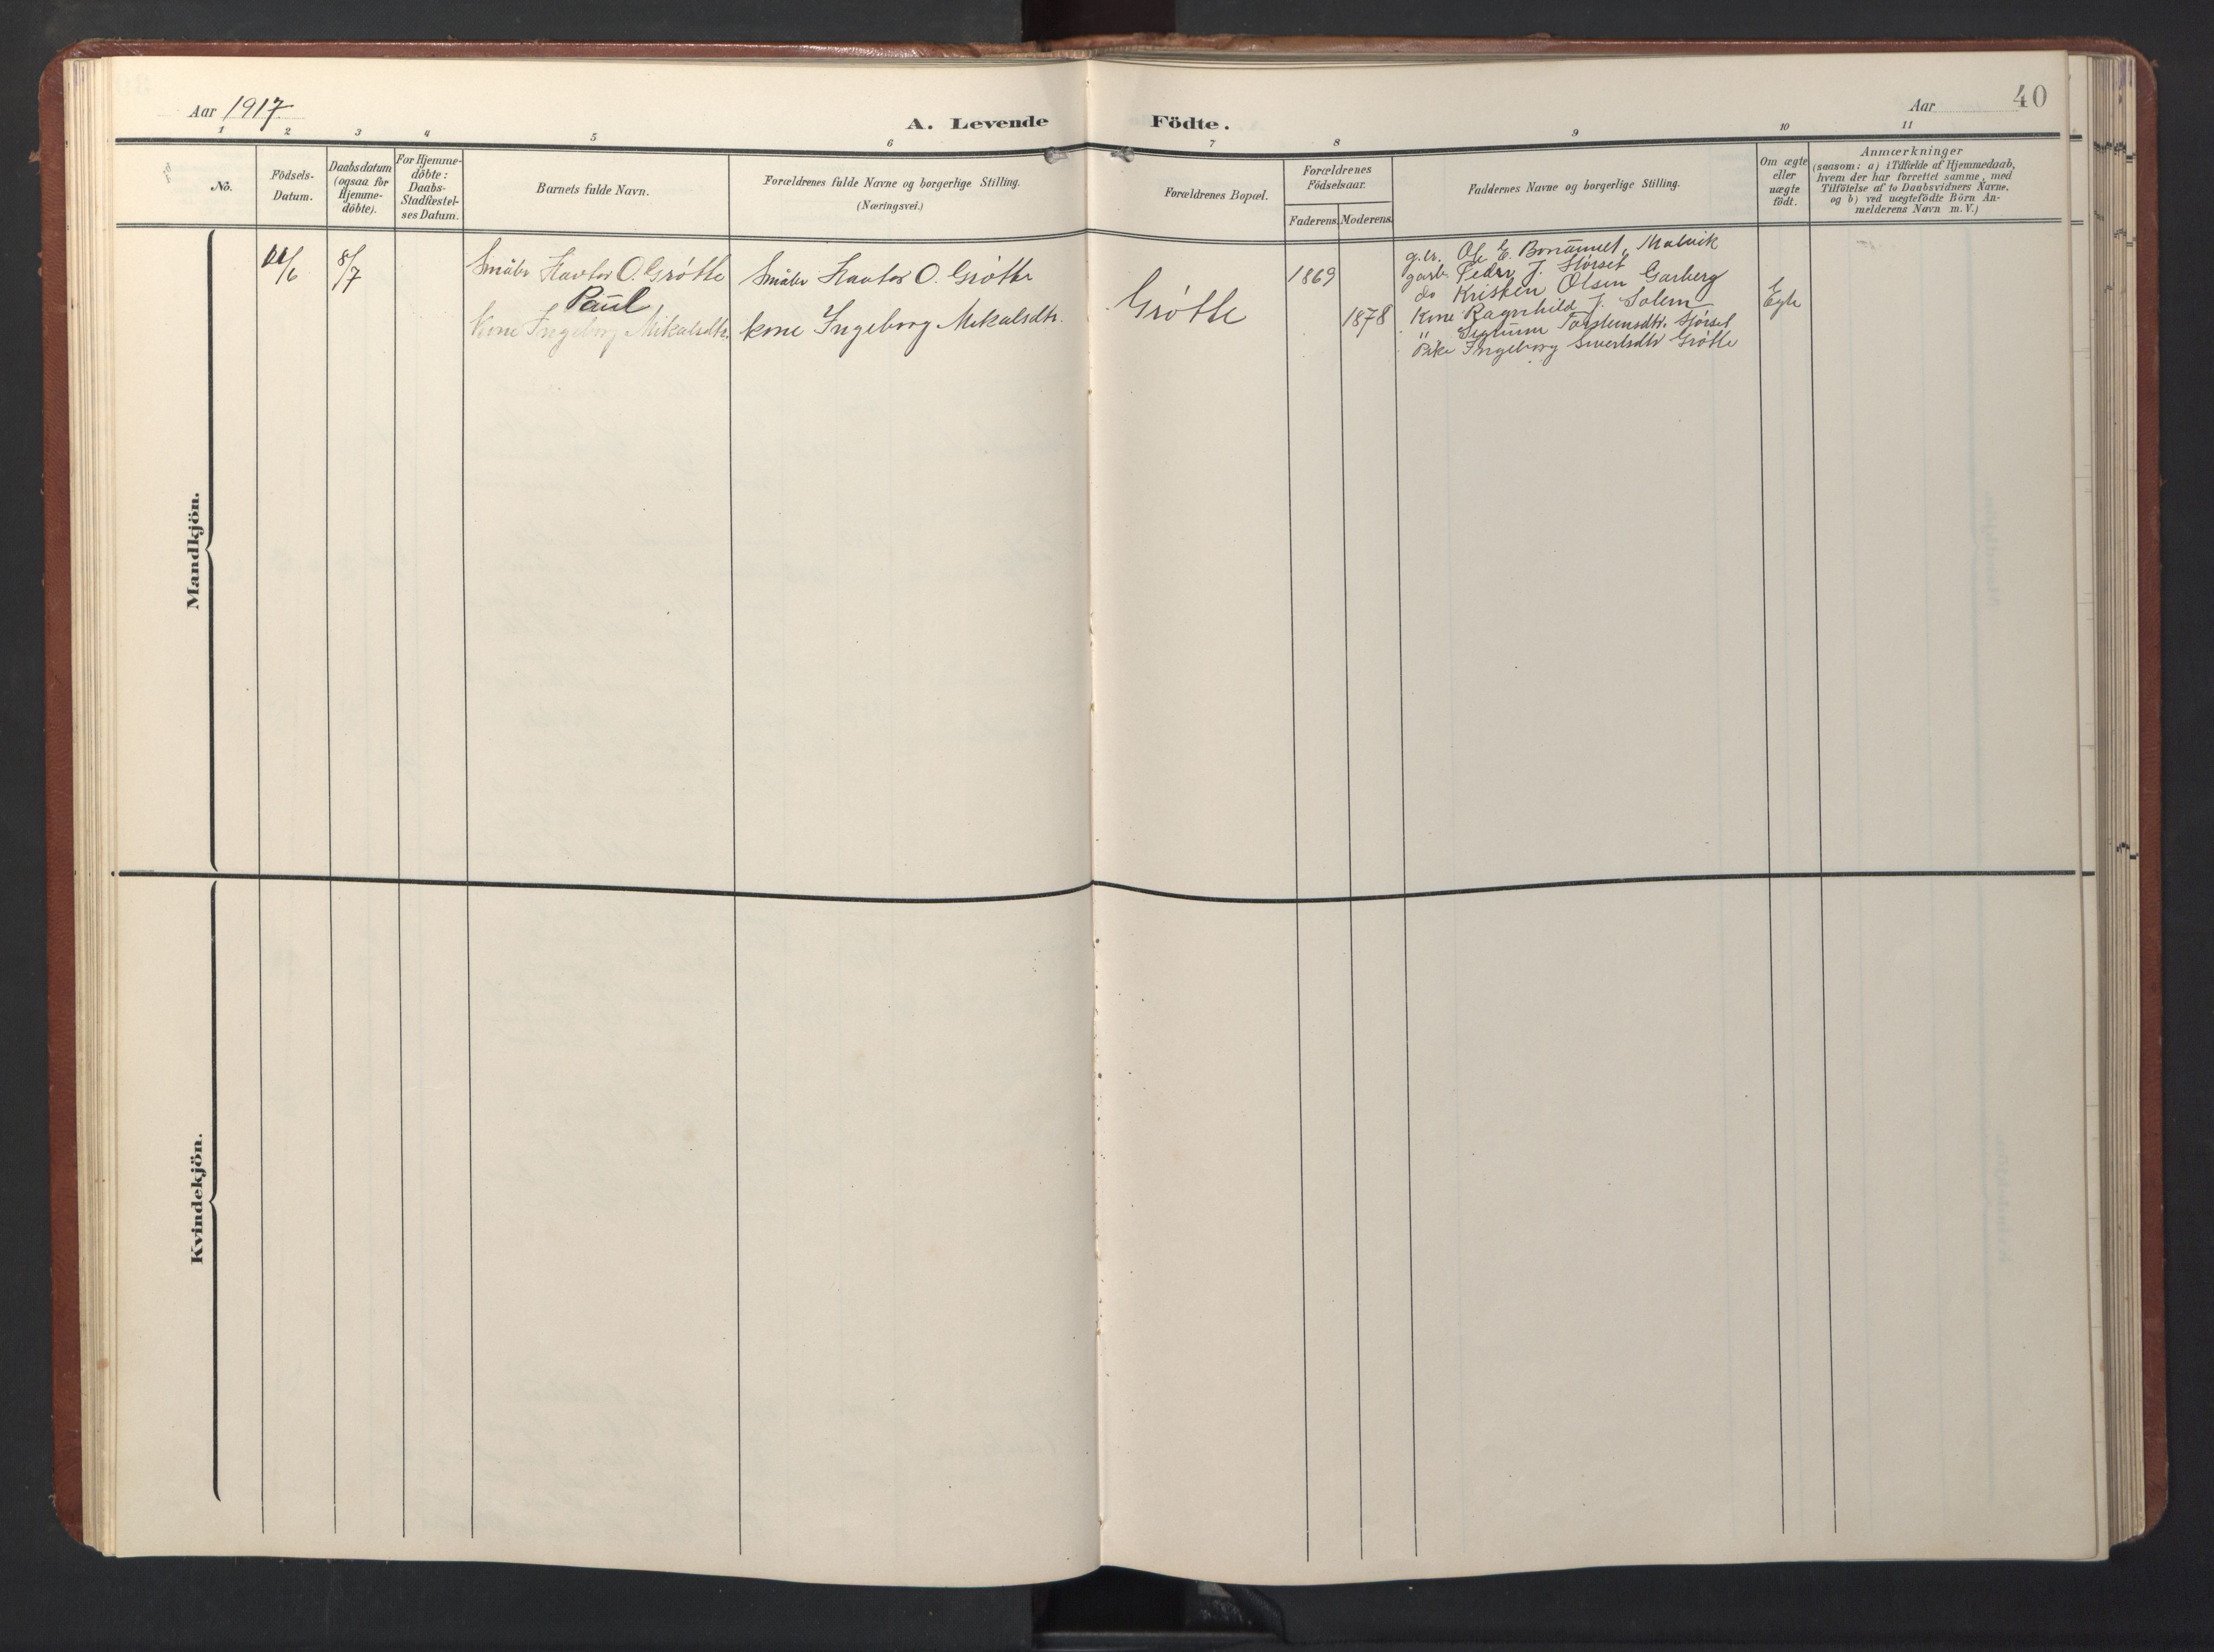 Aar 1917
A. Levende Födte.
Aar
40
1 2 3 4 5 6 7 8 9 10 11
No.
Födsels-
Datum.
Daabsdatum
(ogsaa for
Hjemme-
döbte).
For Hjemme-
döbte:
Daabs-
Stadfæstel-
ses Datum.
Barnets fulde Navn.
Forældrenes fulde Navne og borgerlige Stilling.
(Næringsvei.)
Forældrenes Bopæl.
Forældrenes
Födselsaar.
Faderens. Moderens.
Faddernes Navne og borgerlige Stilling.
Om ægte
eller
uægte
födt.
Anmærkninger
(saasom: a) i Tilfælde af Hjemmedaab,
hvem der har forrettet samme, med
Tilföielse af to Daabsvidners Navne.
og b) ved uægtefödte Börn An-
melderens Navn m. V.)
Mandkjön.
8/7
Småbr Havtor O. Grøtte
Paul
Kone Ingeborg Mikalsdtr.
Småbr Havtor O. Grøtte
kone Ingeborg Mikalsdtr.
Grøtte
1869
1878
g.br. Ole E. Malvik
garb. Peder J. Størset
do Kristen Olsen Garberg
Kone Ragnhild J. Solem
" Torsteinsdtr. Størset
Pike Ingeborg Sivertsdtr Grøtte
Egte
Kvindekjön.